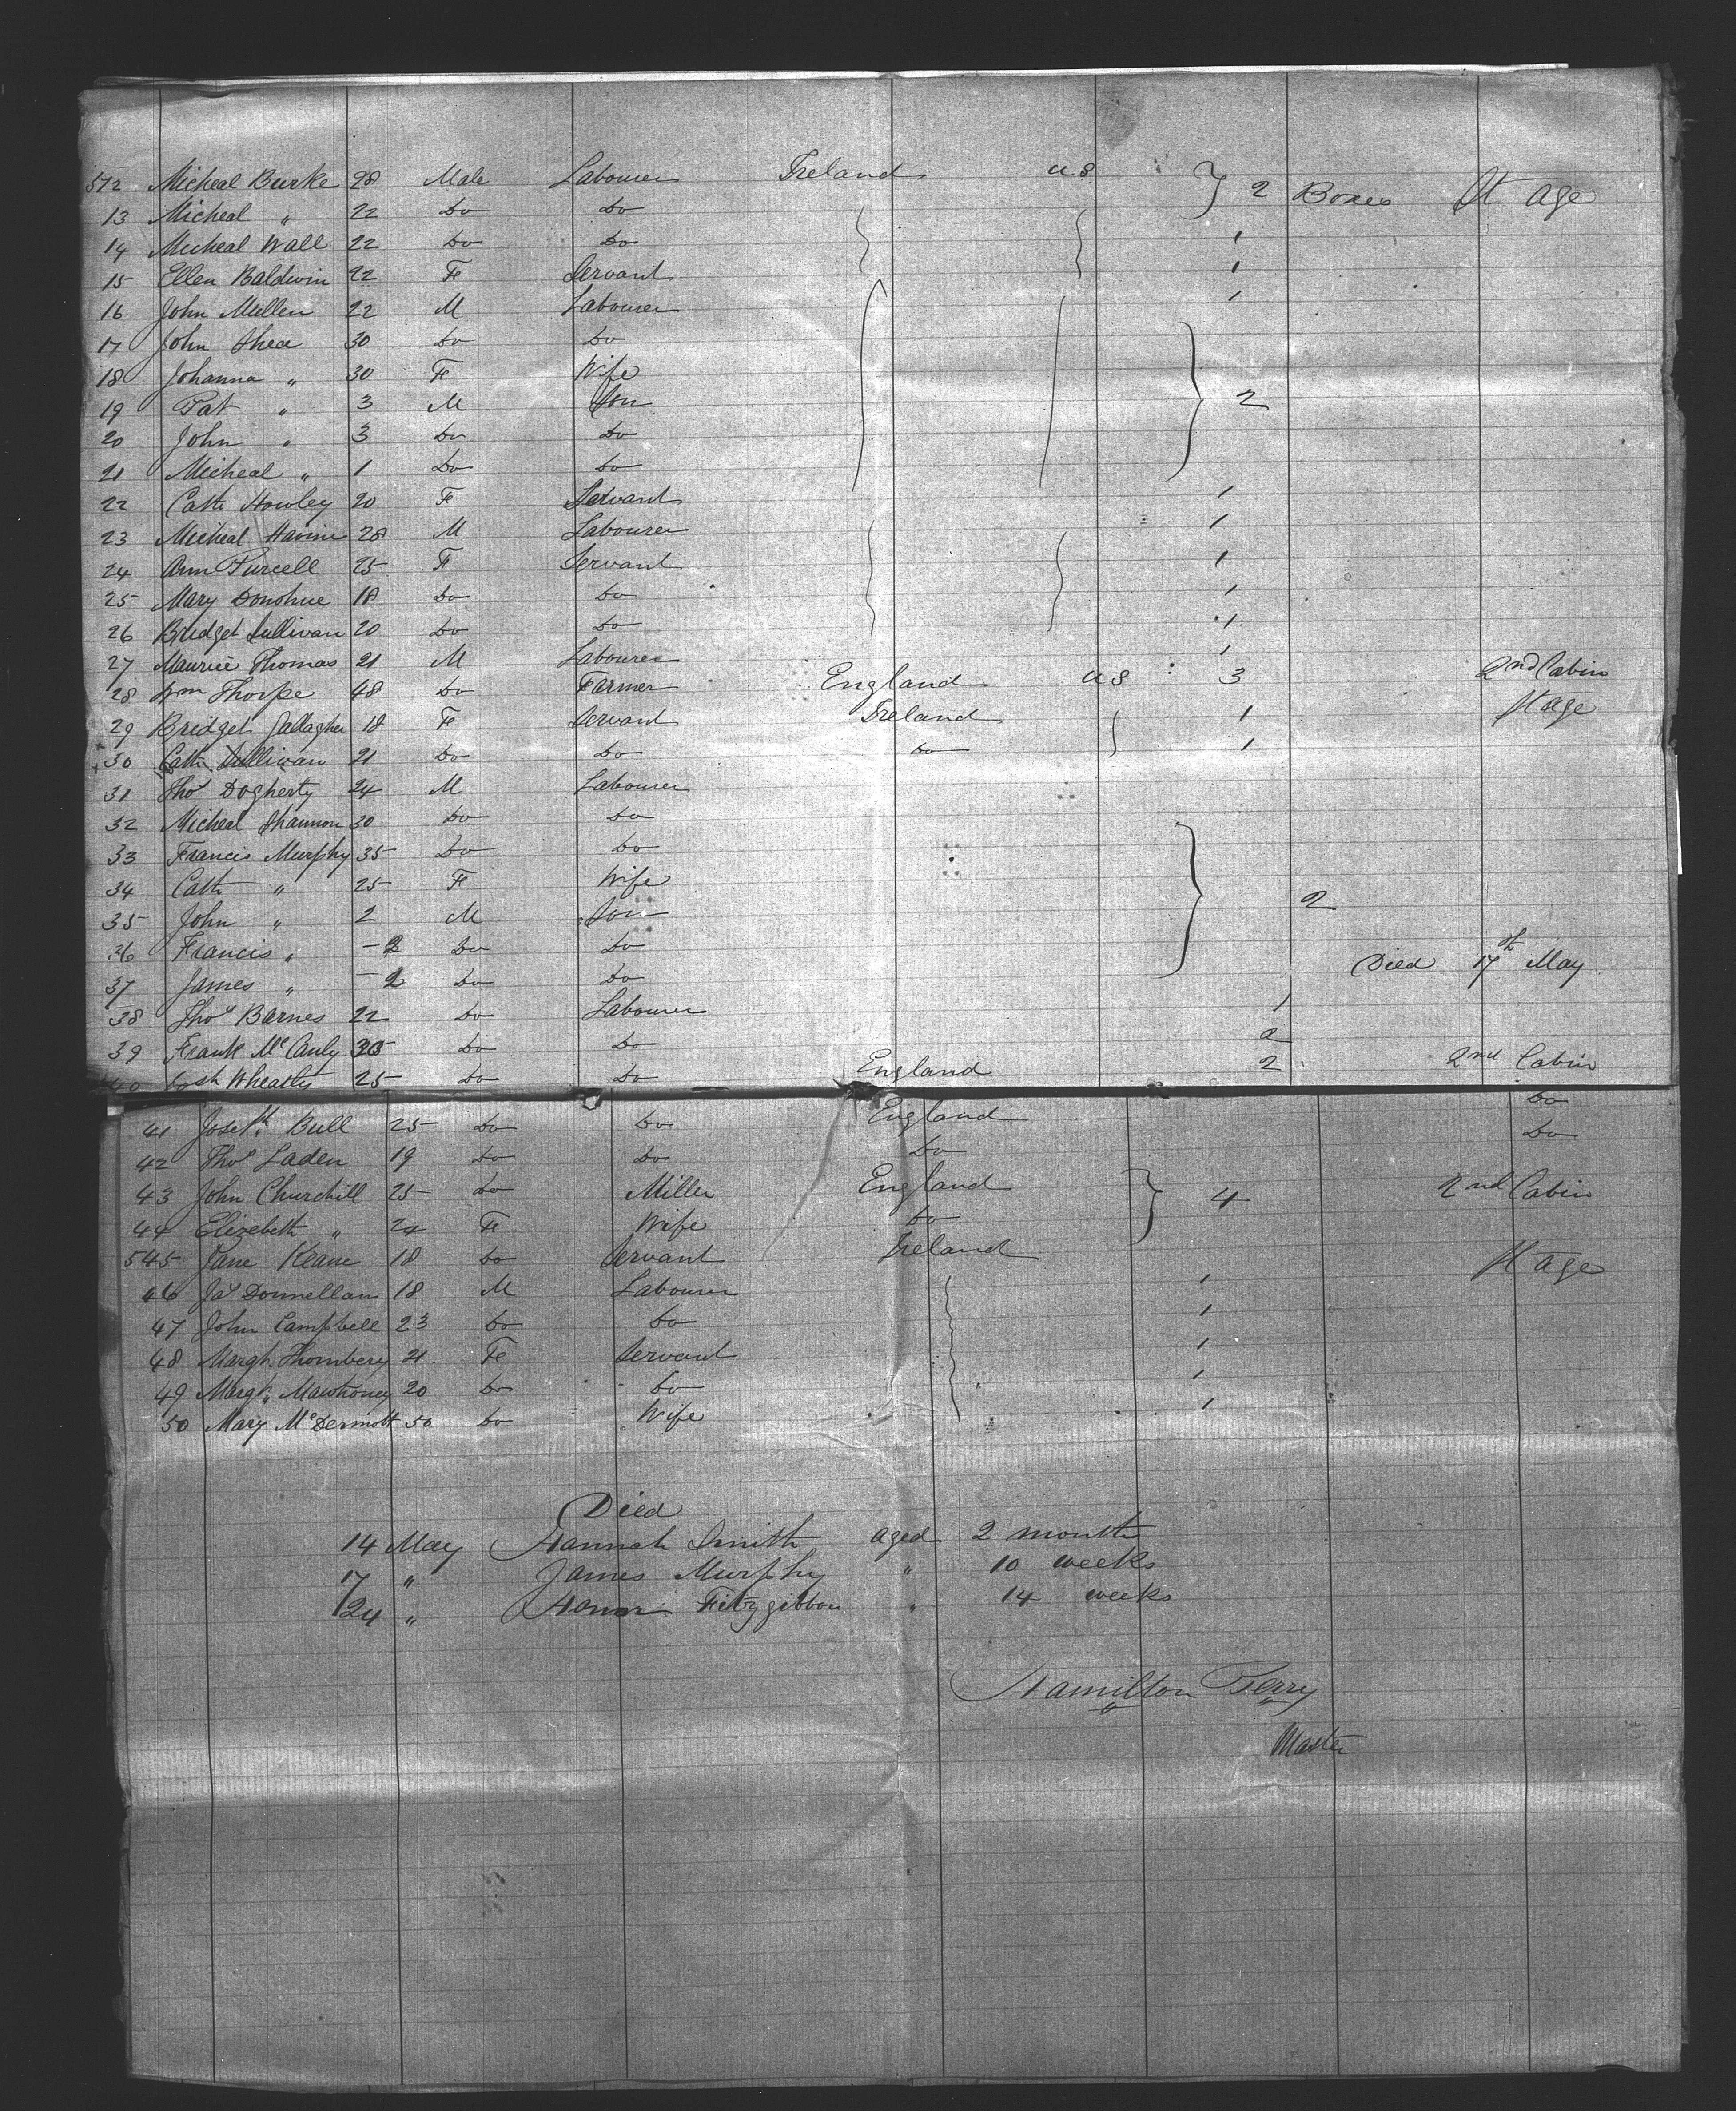 512 Micheal Burke 28 Male Labourer Ireland U S } 2 Boxes St age
13 Micheal " 22 Do Do
14 Micheal Wall 22 Do Do 1
15 Ellen Baldwin 22 Fe Servant 1
16 John Mullen 22 M Labourer 1
17 John Shea 30 Do Do
18 Johanna " 30 Fe Wife
19 Pat " 3 M Son } 2
20 John " 3 Do Do
21 Micheal " 1 Do Do
22 Cath Howley 20 Fe Servant 1
23 Micheal 28 M Labourer 1
24 Ann Purcell 25 F Servant 1
25 Mary Donohue 18 Do Do 1
26 Bridget Sullivan 20 Do Do 1
27 Maurice Thomas 21 M Labourer 1
28 Wm Thorpe 48 Do Farmer England U S 3 2nd Cabin
29 Bridget Gallagher 18 Fe Servant Ireland 1 Stage
30 Cath Sullivan 21 Do Do Do 1
31 Thos Dogherty 24 M Labourer
32 Micheal Shannon 30 Do Do
33 Francis Murphy 35 Do Do
34 Cath " 25 Fe Wife
35 John " 2 M Son } 2
36 Francis " - 2 Do Do
37 James " - 2 Do Do Died 17th May
38 Thos Barnes 22 Do Labourer 1
39 Frank McCauly Do Do 2
40 Wheatly 25 Do Do England 2 2nd Cabin
41 Joseth Bull 25 Do Do England Do
42 Thos Laden 19 Do Do Do Do
43 John Churchill 25 Do Miller England } 4 2nd Cabin
44 Elizebeth " 24 Fe Wife Do
545 Jane Keane 18 Do Servant Ireland St age
46 Jas Donnellan 18 M Labourer 1
47 John Campbell 23 Do Do 1
48 Margt Thornbery 21 Fe Servant 1
49 Margt Mawhoney 20 Do Do 1
50 Mary McDermott 50 Do Wife 1
Died
14 May Hannah Smith aged 2 months
17 " James Murphy " 10 weeks
24 " Honor Fitzgibbon " 14 weeks
Hamilton Perry
Master